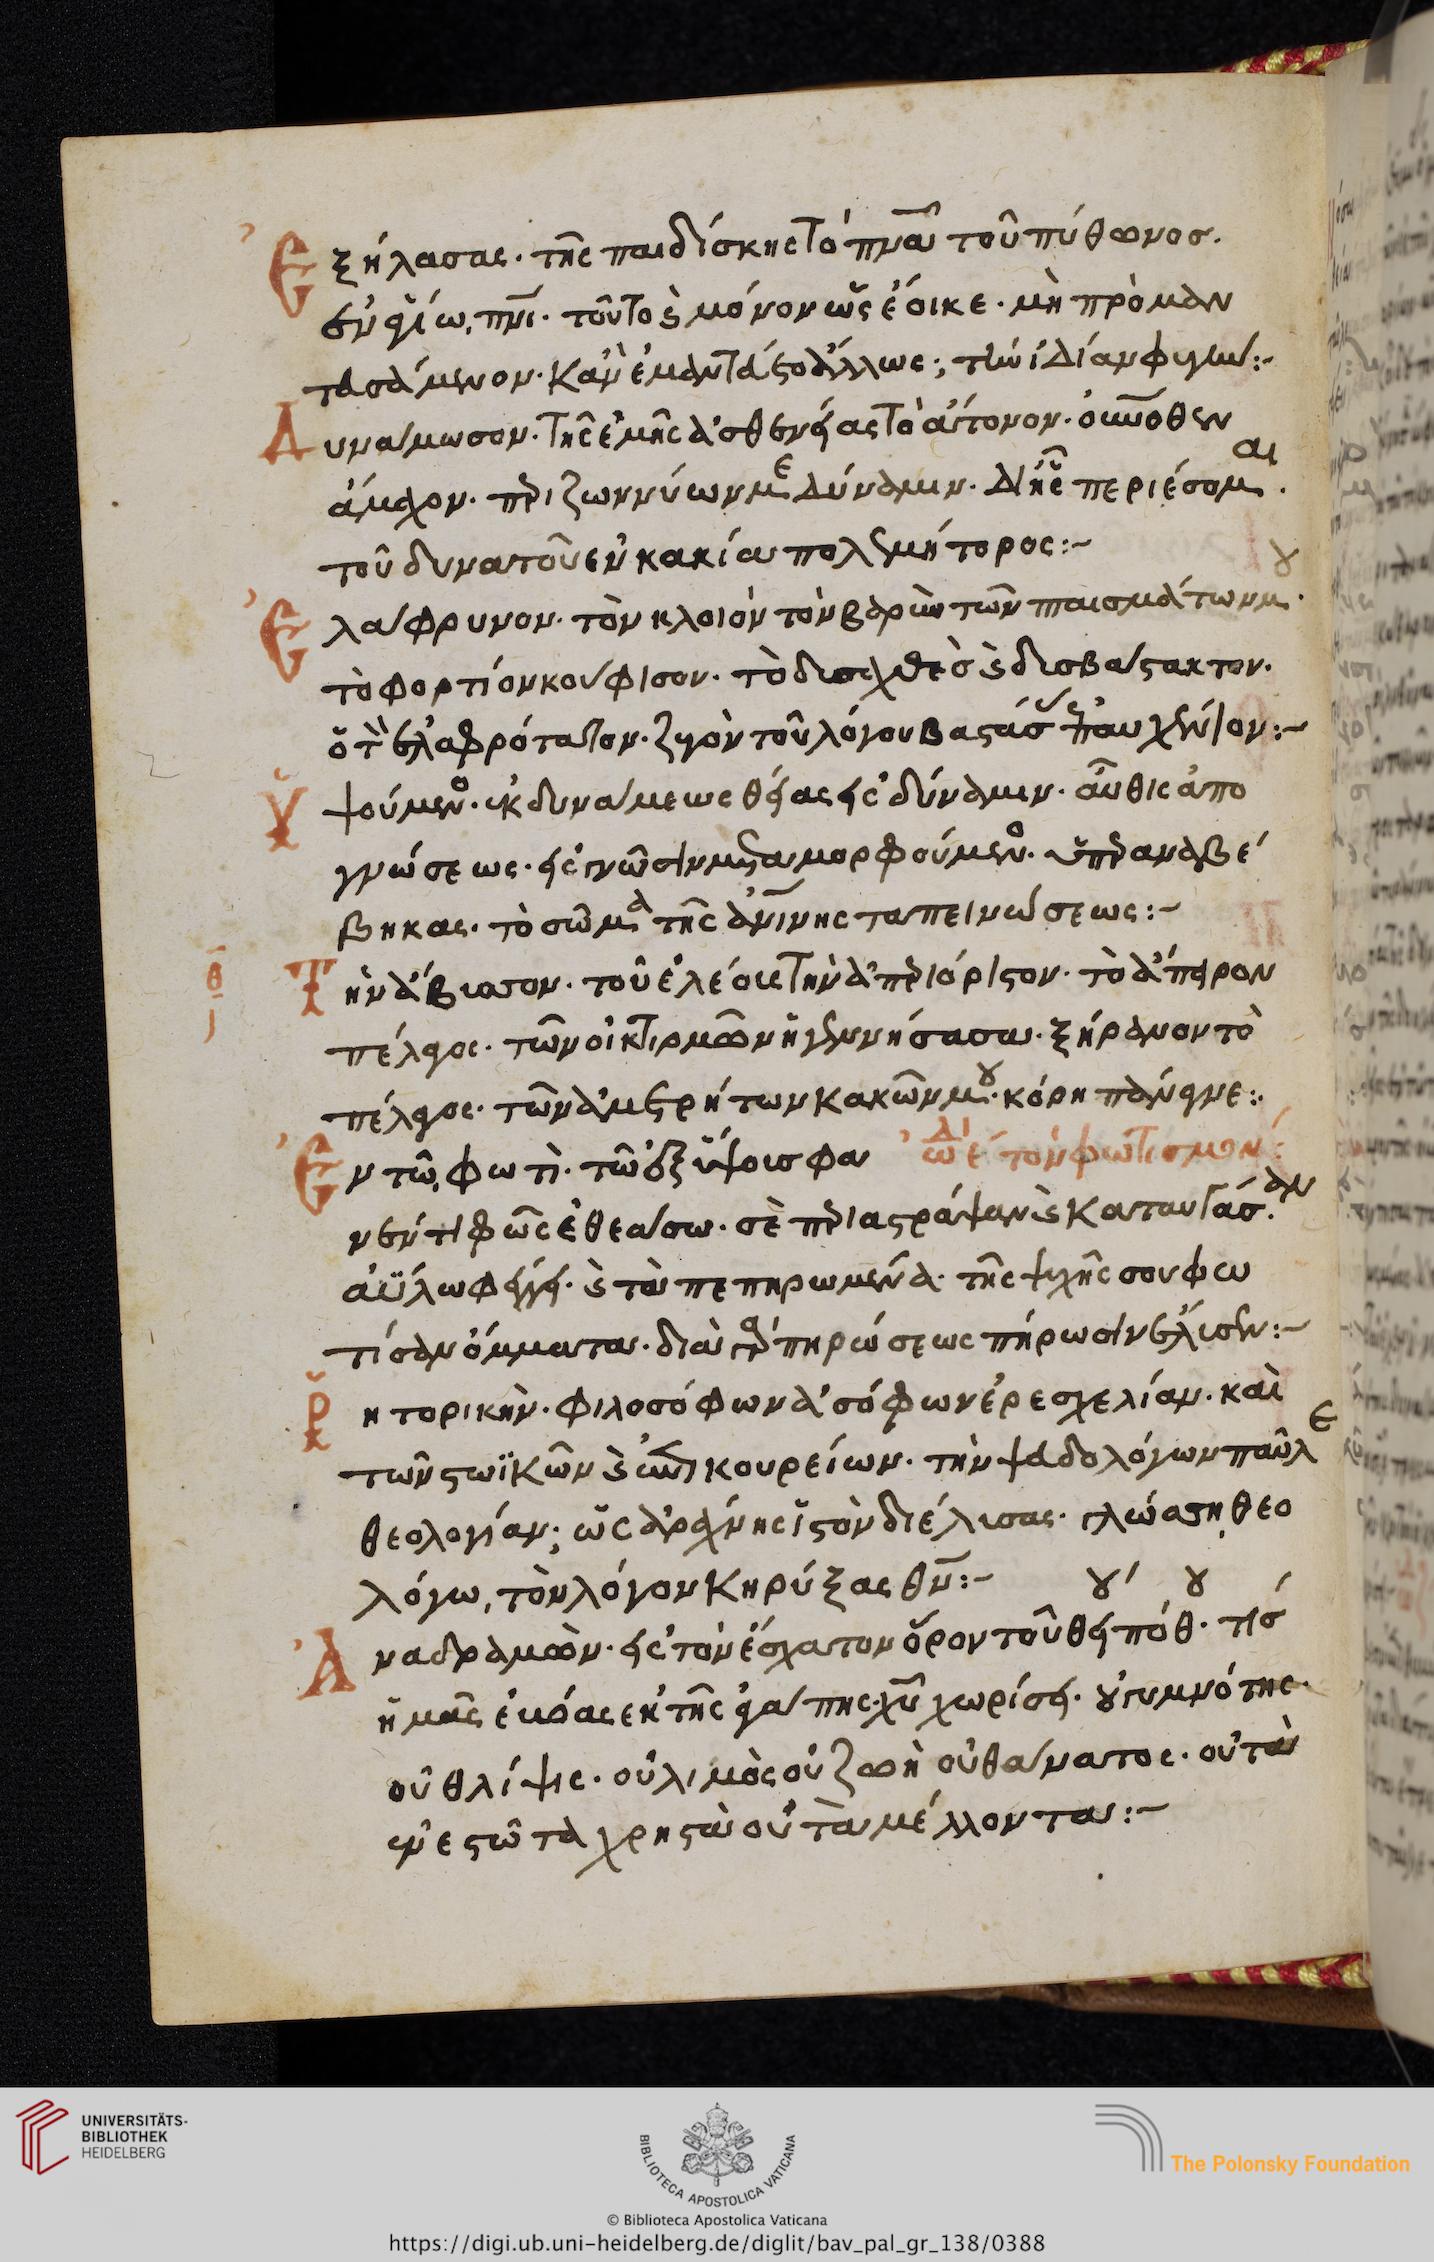 Ἐξήλασας· τῆς παιδίσκης τὸ πνᾶ τοῦ πύθωνος·
ἐν ἁγίω πνι· τοῦτο μόνον ὡς ἔοικε· μὴ προμαν
τευσάμενον·
Δυνάμωσον· τῆς ἐμῆς ἀσθενείας τὸ ἄτονον·
ἄμαχον· περιζωννύων με δύναμιν· δι' ἧς περιέσομαι·
τοῦ δυνατοῦ ἐν κακία πολεμήτορος:~
Ἐλάφρυνον· τὸν κλοιὸν τὸν βαρὺν τῶν πταισμάτων μου·
τὸ φορτίον κούφισον· τὸ δυσαχθὲς ϗ δυσβάστακτον·
ἐλαφρότατον· ζυγὸν τοῦ λόγου βαστάσ
Ὑψούμενος· ἐκ δυνάμεως θείας εἰς δύναμιν· αὖθις ἀπὸ
γνώσεως· εἰς γνῶσιν μεταμορφούμενος· ὑπεραναβέ
βηκας· τὸ σῶμα τῆς ταπεινώσεως:~
Τὴν ἄβυσσον· τοῦ ἐλέους τὴν ἀπεριόριστον· τὸ ἄπειρον
πέλαγος· τῶν οἰκτιρμῶν ἡ γεννήσασα· ξήρανον τὸ
πέλαγος· τῶν ἀμετρήτων κακῶν μου· κόρη πάναγνε:
Ἐν τῶ φωτὶ· τῶ ἐξ ὕψοις φα
νέντι φῶς ἐθεάσω· σὲ περιαστράψαν ϗ καταυγάσαν
ἀΰλω φέγγει· ϗ τὰ πεπηρωμένα· τῆς ψυχῆς σου φω
τίσαν ὄμματα· διὰ πηρώσεως πήρωσιν ἔλυσεν:~
Ῥητορικὴν· φιλοσόφων ἀσόφων ἐρεσχελίαν· καὶ
τῶν στωϊκῶν ϗ ἐπικουρείων· τὴν ψευδολόγων παῦλε
θεολογίαν· ὡς ἀράχνης ἱστὸν διέλυσας· γλώσση θεο
λόγω, τὸν λόγον κηρύξας θν:~
Ἀναδραμὼν· εἰς τὸν ἔσχατον ὅρον τοῦ θείου πόθου· τίς
ἡμᾶς ἐβόας ἐκ τῆς ἀγάπης χυ χωρίσει· οὐ γυμνότης·
οὐ θλίψις· οὐ λιμὸς οὐ ζωὴ οὐ θάνατος· οὐ τὰ
ἐνεστῶτα χρηστὰ οὐ τὰ μέλλοντα:~
UNIVERSITÄTS-
BIBLIOTHEK
HEIDELBERG
BIBLIOTECA APOSTOLICA VATICANA
The Polonsky Foundation
© Biblioteca Apostolica Vaticana
https://digi.ub.uni-heidelberg.de/diglit/bav_pal_gr_138/0388